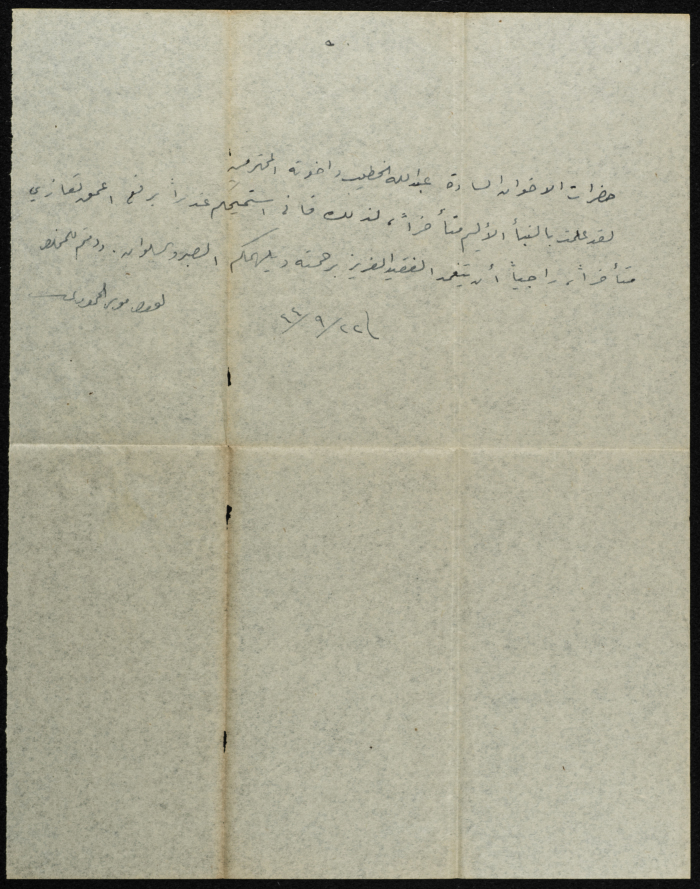 حضرات الاخوان السادة عبدالله الخطيب واخوته المحترمين
لقد علمت بالنبأ الأليم متأخراً، لذلك فاني استميحكم عذراً برفع اعمق تعازيي
متأخراً، راجياً أن يتغمد الفقيد العزيز برحمته ويلهمكم الصبر والسلوان. ودمتم للمخلص
موسى
٤٤/٩/٢٢